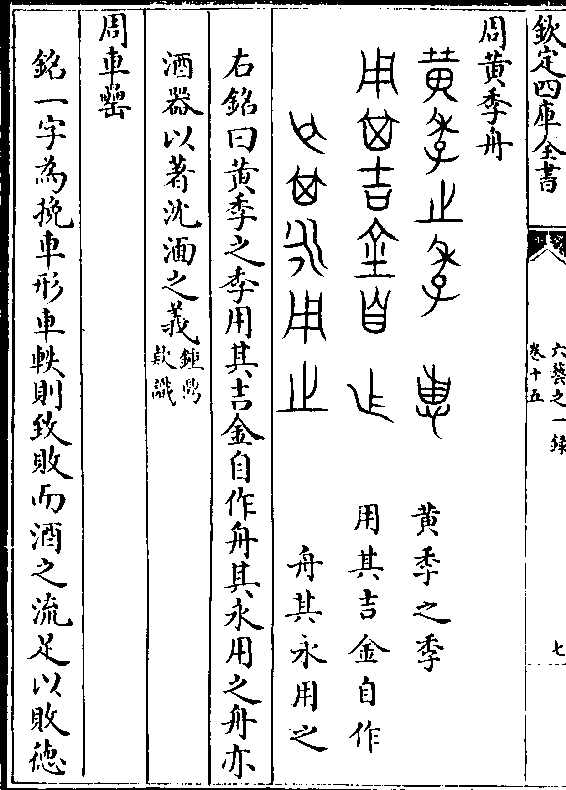 欽定四庫全書
六藝之一錄
卷十五
七
周黄季舟
黄季之季
用其吉金自作
舟其永用之
右銘曰黄季之季用其吉金自作舟其永用之舟亦
酒器以著沈湎之義鍾鼎欵識
周車罍
銘一字為挽車形車軼則致敗而酒之流足以敗徳